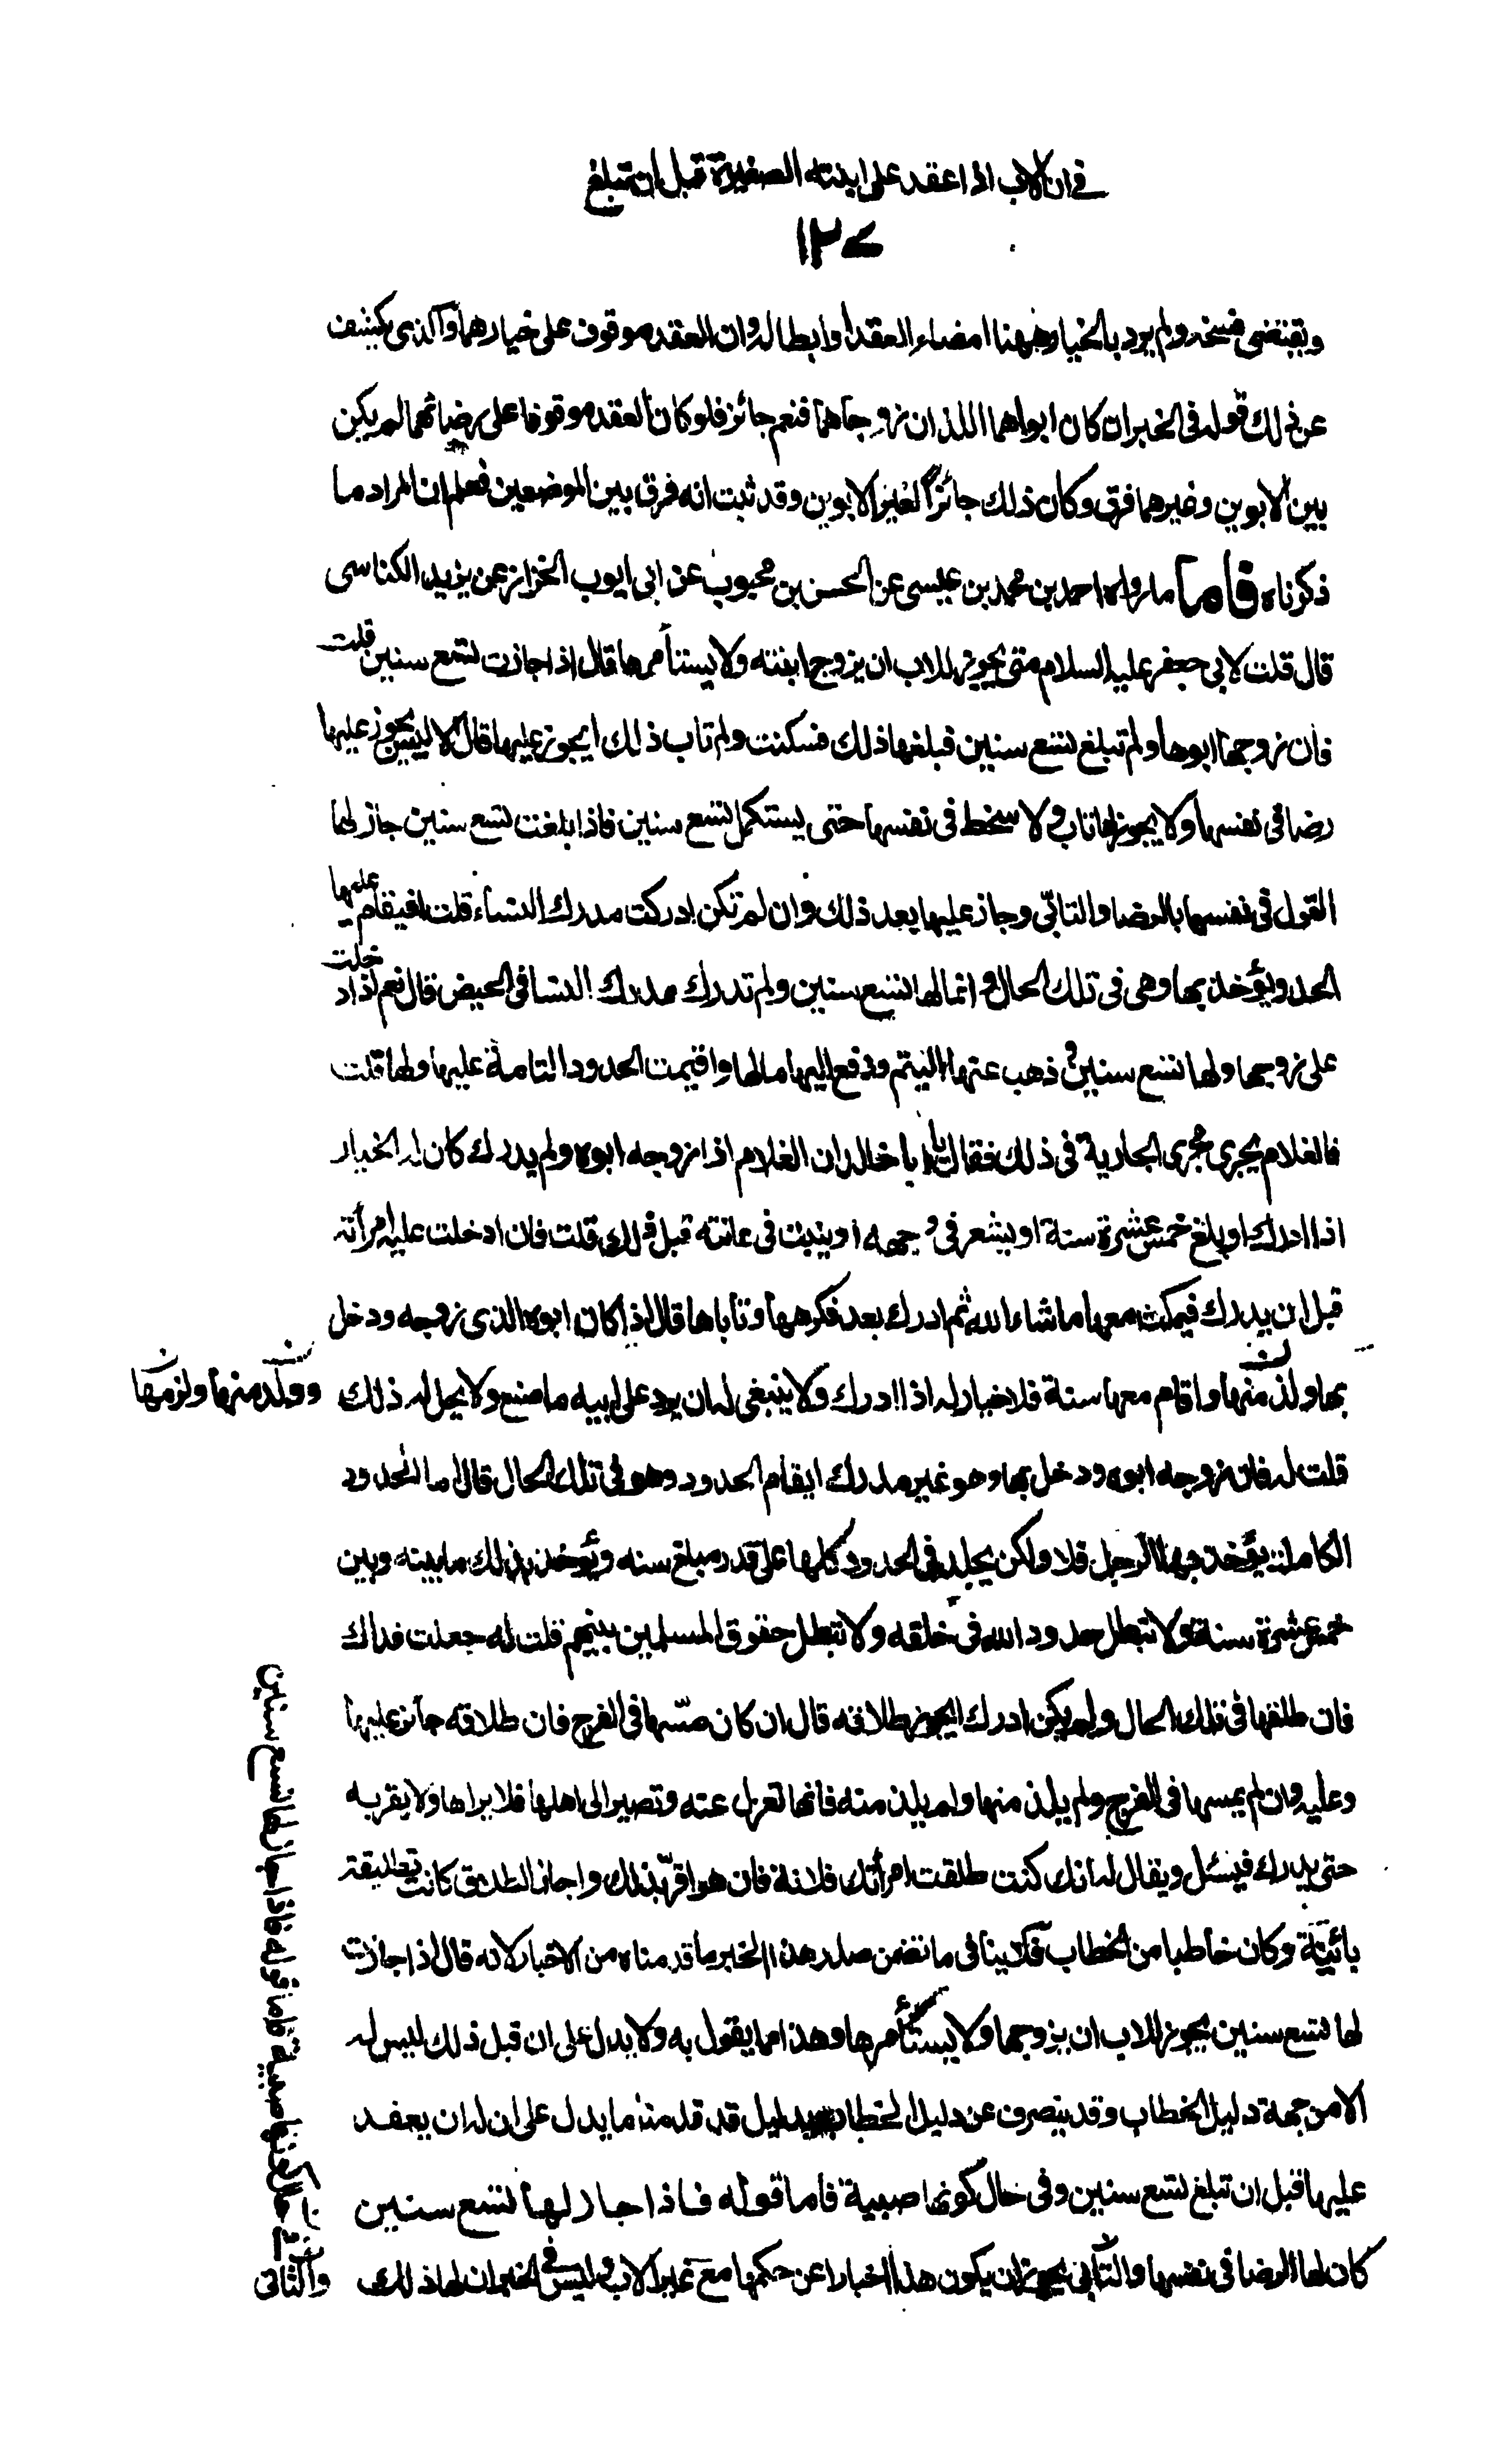 في ان الاب اذا عقد على ابنته الصغيرة قبل ان تبلغ
١٢٧
ويقتضى فسخه ولم يرد بالخيار ههنا امضاء العقد او ابطاله وان العقد موقوف على خيارهما والذى يكشف
عن ذلك قوله فى الخبر ان كان ابواهما اللذان زوجاهما فنعم جائز فلو كان العقد موقوفا على رضائهما لم يكن
بين الابوين وغيرهما فرق وكان ذلك جائزاً لغير الابوين وقد ثبت انه فرق بين الموضعين فعلم ان المراد ما
ذكرناه فاما ما رواه احمد بن محمد بن عيسى عن الحسن بن محبوب عن ابى ايوب الخزاز عن يزيد الكناسى
قال قلت لابى جعفر عليه السلام متى يجوز للاب ان يزوج ابنته ولا يستأمرها قال اذا جازت تسع سنين قلت
فان زوجها ابوها ولم تبلغ تسع سنين فبلغها ذلك فسكتت ولم تاب ذلك ايجوز عليها قال لا ليس يجوز عليها
رضا فى نفسها ولا يجوز لها تاب ولا سخط فى نفسها حتى يستكمل تسع سنين فاذا بلغت تسع سنين جاز لها
القول فى نفسها بالرضا والتابّى وجاز عليها بعد ذلك وان لم تكن ادركت مدرك النساء قلت افيقام عليها
الحدود ويؤخذ بها وهى فى تلك الحال وانما لها تسع سنين ولم تدرك مدرك النسا فى الحيض قال نعم اذا دخلت
على زوجها ولها تسع سنين ذهب عنها اليتم ودفع اليها مالها واقيمت الحدود التامة عليها ولها قلت
فالغلام يجرى مجرى الجارية فى ذلك فقال يا ابا خالد ان الغلام اذا زوجه ابوه ولم يدرك كان له الخيار
اذا ادرك او بلغ خمس عشرة سنة او يشعر فى وجهه او ينبت فى عانته قبل ذلك قلت فان ادخلت عليه امرأته
قبل ان يدرك فيمكث معها ما شاء الله ثم ادرك بعد فكرهها وتأباها قال اذا كان ابوه الذى زوجه ودخل
بها ولذ منها واقام معها سنة فلا خيار له اذا ادرك ولا ينبغى له ان يرد على ابيه ما صنع ولا يحل له ذلك
وولد منها ولزمها
قلت له فان زوجه ابوه ودخل بها وهو غير مدرك ايقام الحدود وهو فى تلك الحال قال اما الحدود
الكاملة يؤخذ بها الرجل فلا ولكن يجلد فى الحدود كلها على قدر مبلغ سنه ويؤخذ بذلك ما بينه وبين
خمس عشرة سنة ولا تبطل حدود الله فى خلقه ولا تبطل حقوق المسلمين بينهم قلت له جعلت فداك
فان طلقها فى تلك الحال ولم يكن ادرك ايجوز طلاقه قال ان كان مسّها فى الفرج فان طلاقه جائز عليها
وعليه وان لم يمسها فى الفرج ولم يلذ منها ولم يلذ منه فانها تعزل عنه وتصير الى اهلها فلا يراها ولا يقربه
حتى يدرك فيسئل ويقال له انك كنت طلقت امرأتك فلانة فان هو اقرّ بذلك واجاز الطلاق كانت تطليقة
بائنة وكان خاطبا من الخطاب فلا ينافى ما تضمن صدر هذا الخبر ما قدمناه من الاخبار لانه قال اذا جازت
لها تسع سنين يجوز للاب ان يزوجها ولا يستأمرها وهذا مما يقول به ولا يدل على ان قبل ذلك ليس له
الا من جهة دليل الخطاب وقد ينصرف عن دليل الخطاب بدليل قد قدمنا ما يدل على ان له ان يعقد
عليها قبل ان تبلغ تسع سنين وفى حال كونها صبية فاما قوله فاذا جاز لها تسع سنين
كان لها الرضا فى نفسها والتأبى يجوز ان يكون هذا اخبارا عن حكمها مع غير الاب وليس فى الخبر ان لها ذلك
حال كونها صبية فاما قوله فاذا جاز لها تسع سنين
والتابى